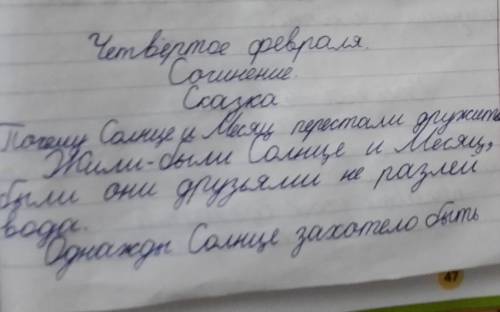 Четвёртое февраля.
Сочинение.
Сказка
Почему Солнце и Месяц перестали дружить
Жили-были Солнце и Месяц,
были они друзьями не разлей
вода.
Однажды Солнце захотело быть
47